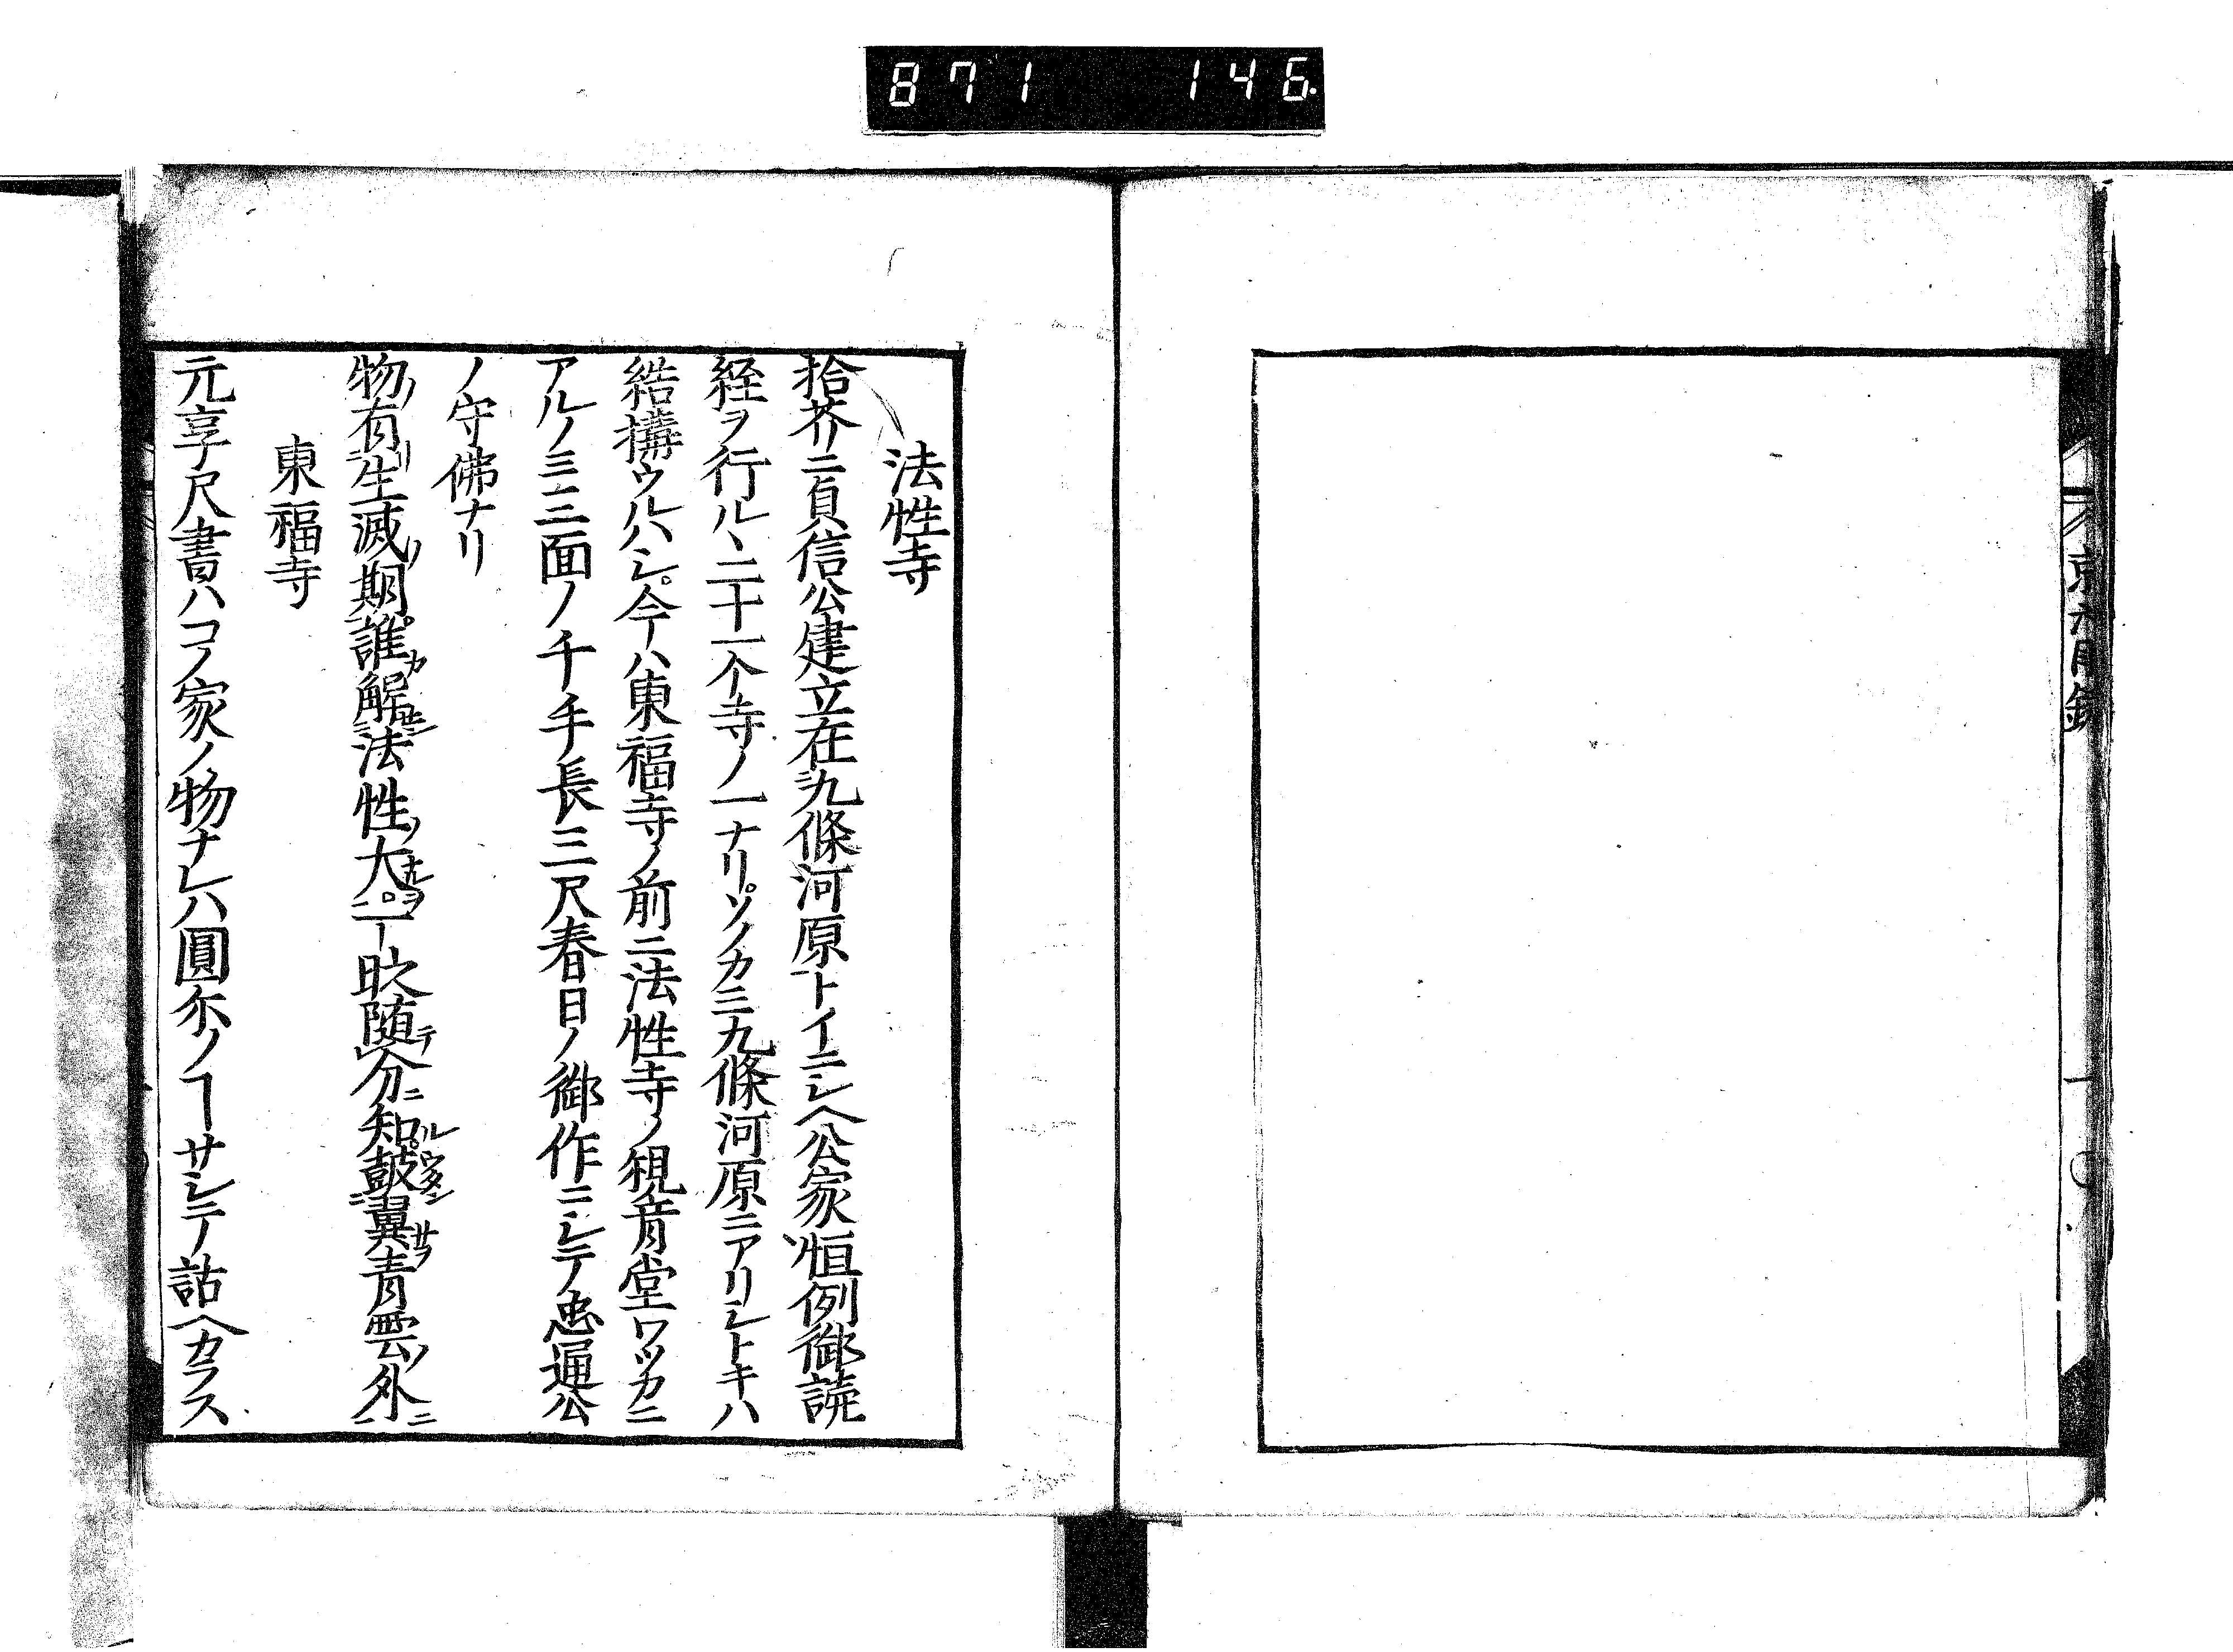 871 146
法性寺
拾芥ニ貞信公建立在九條河原トイニシヘ公家恒例御読
経ヲ行ルヽ二十一个寺ノ一ナリソノカミ九條河原ニアリシトキハ
結構ウルハシ今ハ東福寺ノ前ニ法性寺ノ観音堂ワツカニ
アルノミ三面ノ千手長三尺春日ノ御作ニシテ忠通公
ノ守佛ナリ
物ノ有リ生滅ノ期誰カ解セン法性ノ大ナルヲ一歃随テ分ニ知ル鼓翼青雲ノ外ニ
東福寺
元亨尺書ハコノ家ノ物ナレハ圓尓ノヿサシテ詁ヘカラス